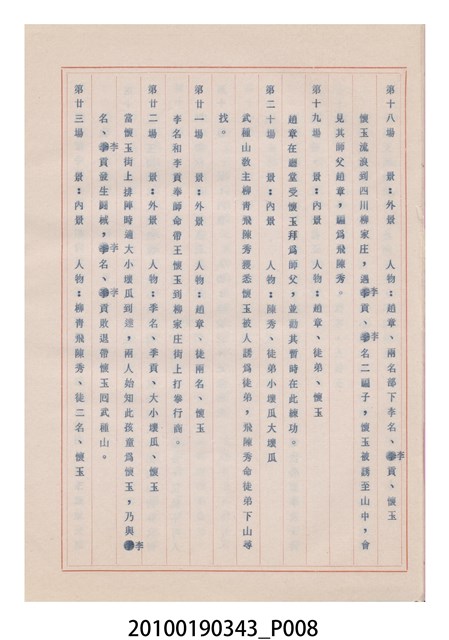 第十八場　　景：外景　　人物：趙章、兩名部下李名、李貢、懷玉
懷玉流浪到四川柳家庄，遇李貢、李名二騙子，懷玉被誘至山中，會
見其師父趙章，騙爲飛陳秀。
第十九場　　景：內景　　人物：趙章、徒弟、懷玉
趙章在廳堂受懷玉拜爲師父，並勸其暫時在此練功。
第二十場　　景：內景　　人物：陳秀、徒弟小壞瓜大壞瓜
武種山敎主柳靑飛陳秀獲悉懷玉被人誘爲徒弟，飛陳秀命徒弟下山尋
找。
第廿一場　　景：外景　　人物：趙章、徒兩名、懷玉
李名和李貢奉師命帶王懷玉到柳家庄街上打拳行商。
第廿二場　　景：外景　　人物：李名、李貢、大小壞瓜、懷玉
當懷玉街上排陣時適大小壞瓜到達，兩人始知此孩童爲懷玉，乃與李
名、李貢發生鬪械，李名、李貢敗退帶懷玉囘武種山。
第廿三場　　景：內景　　人物：柳靑飛陳秀、徒二名、懷玉
20100190343_P008